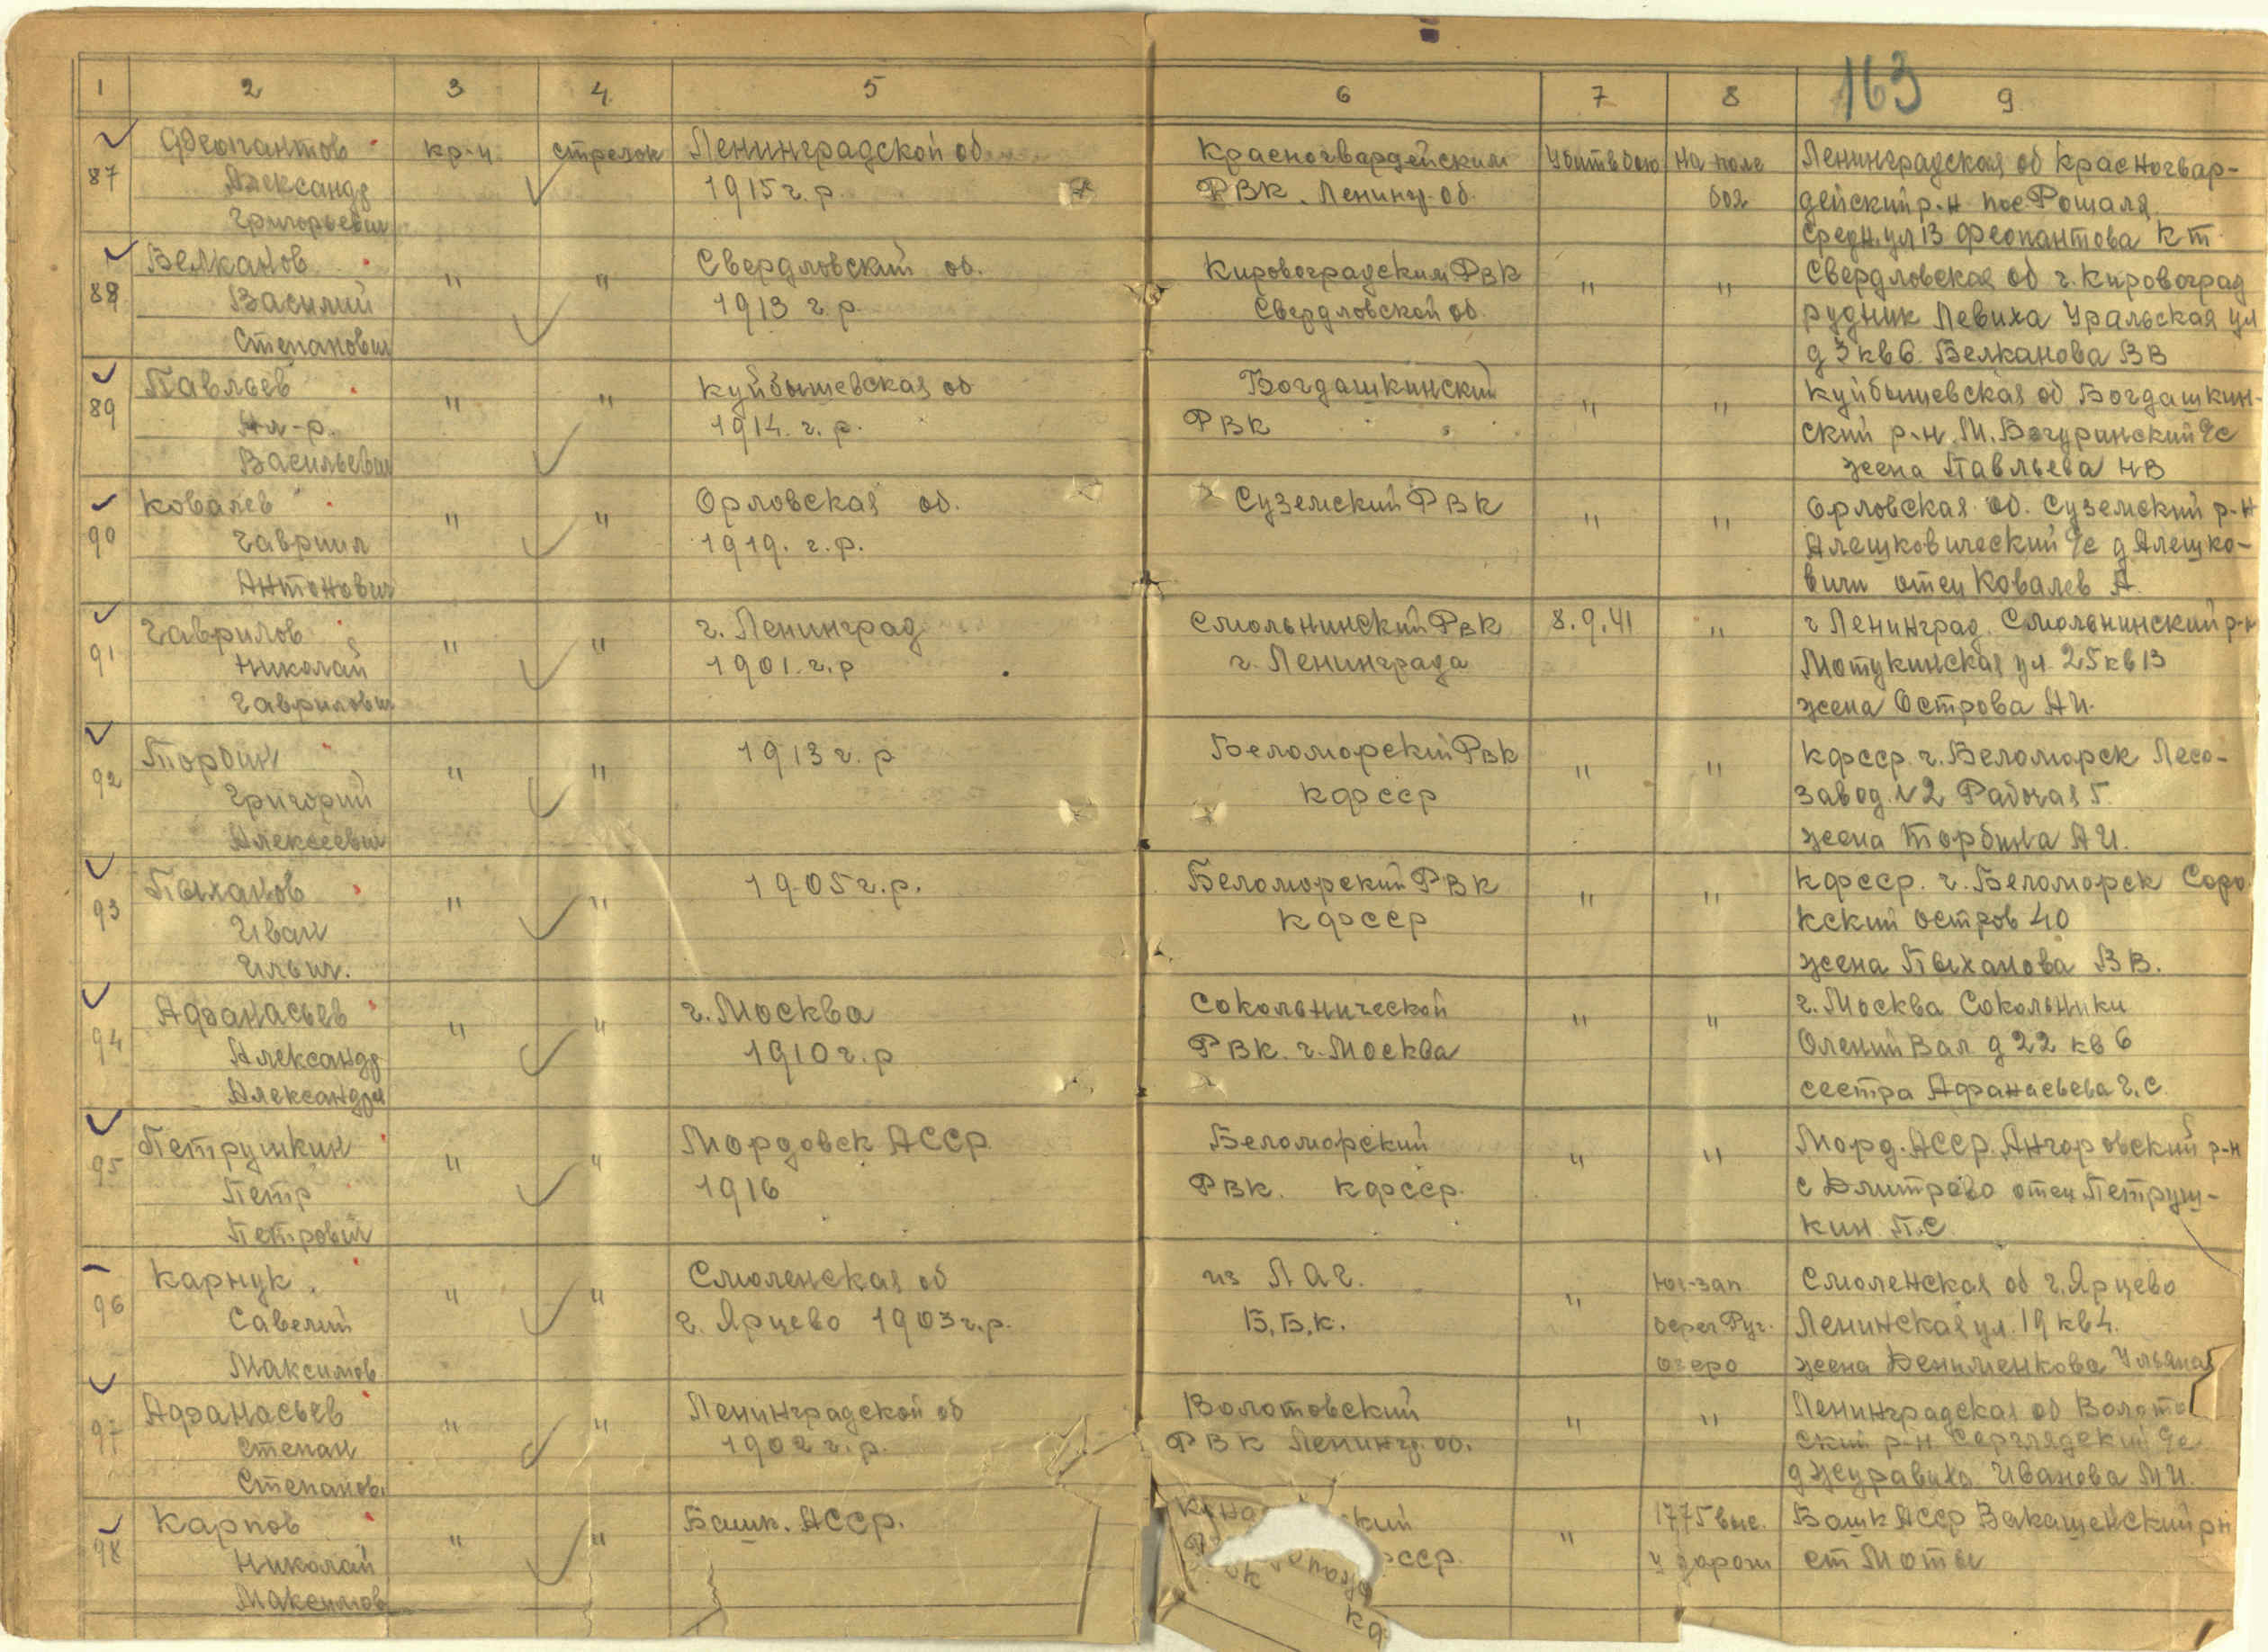 163
1 2 3 4 5 6 7 8 9
87 Феопантов кр-ц стрелок Ленинградской об Красногвардейским Убит в бою На поле Ленинградская об Красногвар-
Александр 1915 г. р. РВК. Ленингр. об. боя дейский р-н пос. Рошаля
Григорьевич Средн. ул 13 Феопантова К Т
88 Велканов " " Свердловский об. Кировоградским РВК " " Свердловская об г. Кировоград
Василий 1913 г. р. Свердловской об. рудник Левиха Уральская ул
Степанович д 3 кв 6. Велканова ВВ
89 Павльев " " Куйбышевская об Богдашкинский " " Куйбышевская об Богдашкин-
Ал-р. 1914. г. р. РВК ский р-н. М. с/с
Васильевич жена Павльева НВ
90 Ковалев " " Орловская об. Суземский РВК " " Орловская об. Суземский р-н
Гавриил 1919. г. р. Алешковический с/с д Алешко-
Антонович вичи отец Ковалев А.
91 Гаврилов " " г. Ленинград Смольнинский РВК 8.9.41 " г Ленинград. Смольнинский р-н
Николай 1901. г. р г. Ленинграда Мотукинская ул. 25 кв 13
Гаврилович жена Острова АИ.
92 Торбин " " 1913 г. р Беломорский РВК " " КФССР. г. Беломорск Лесо-
Григорий КФССР завод. №2 Рабочая 5.
Алексеевич жена Торбина АИ.
93 Пыханов " " 1905 г. р. Беломорский РВК " " КФССР. г. Беломорск Соро
Иван КФССР кский остров 40
Ильич. жена Пыханова ВВ.
94 Афанасьев " " г. Москва Сокольнической " " г. Москва Сокольники
Александр 1910 г. р РВК. г. Москва Олений Вал д 22 кв 6
Александр. сестра Афанасьева Г. С.
95 Петрушкин " " Мордовск АССР. Беломорский " " Морд. АССР. Ангоровский р-н
Петр 1916 РВК. КФССР. с Дмитрово отец Петруш-
Петрович кин П.С
96 Карнук " " Смоленская об из Лаг. " Юг-зап Смоленская об г. Ярцево
Савелий г. Ярцево 1903 г. р. Б.Б.К. берег Руг. Ленинская ул. 19 кв 4.
Максимов озеро жена Денименкова Ульяна
97 Афанасьев " " Ленинградской об Волотовский " " Ленинградская об Волото
Степан 1902 г. р. РВК Ленингр. об. ский р-н с/с
Степанов. д Журавиха Иванова МИ.
98 Карпов " " Башк. АССР. ский " 1775 выс. Башк АССР р-н
Николай ССР. у дорог ст Моты
Максимов